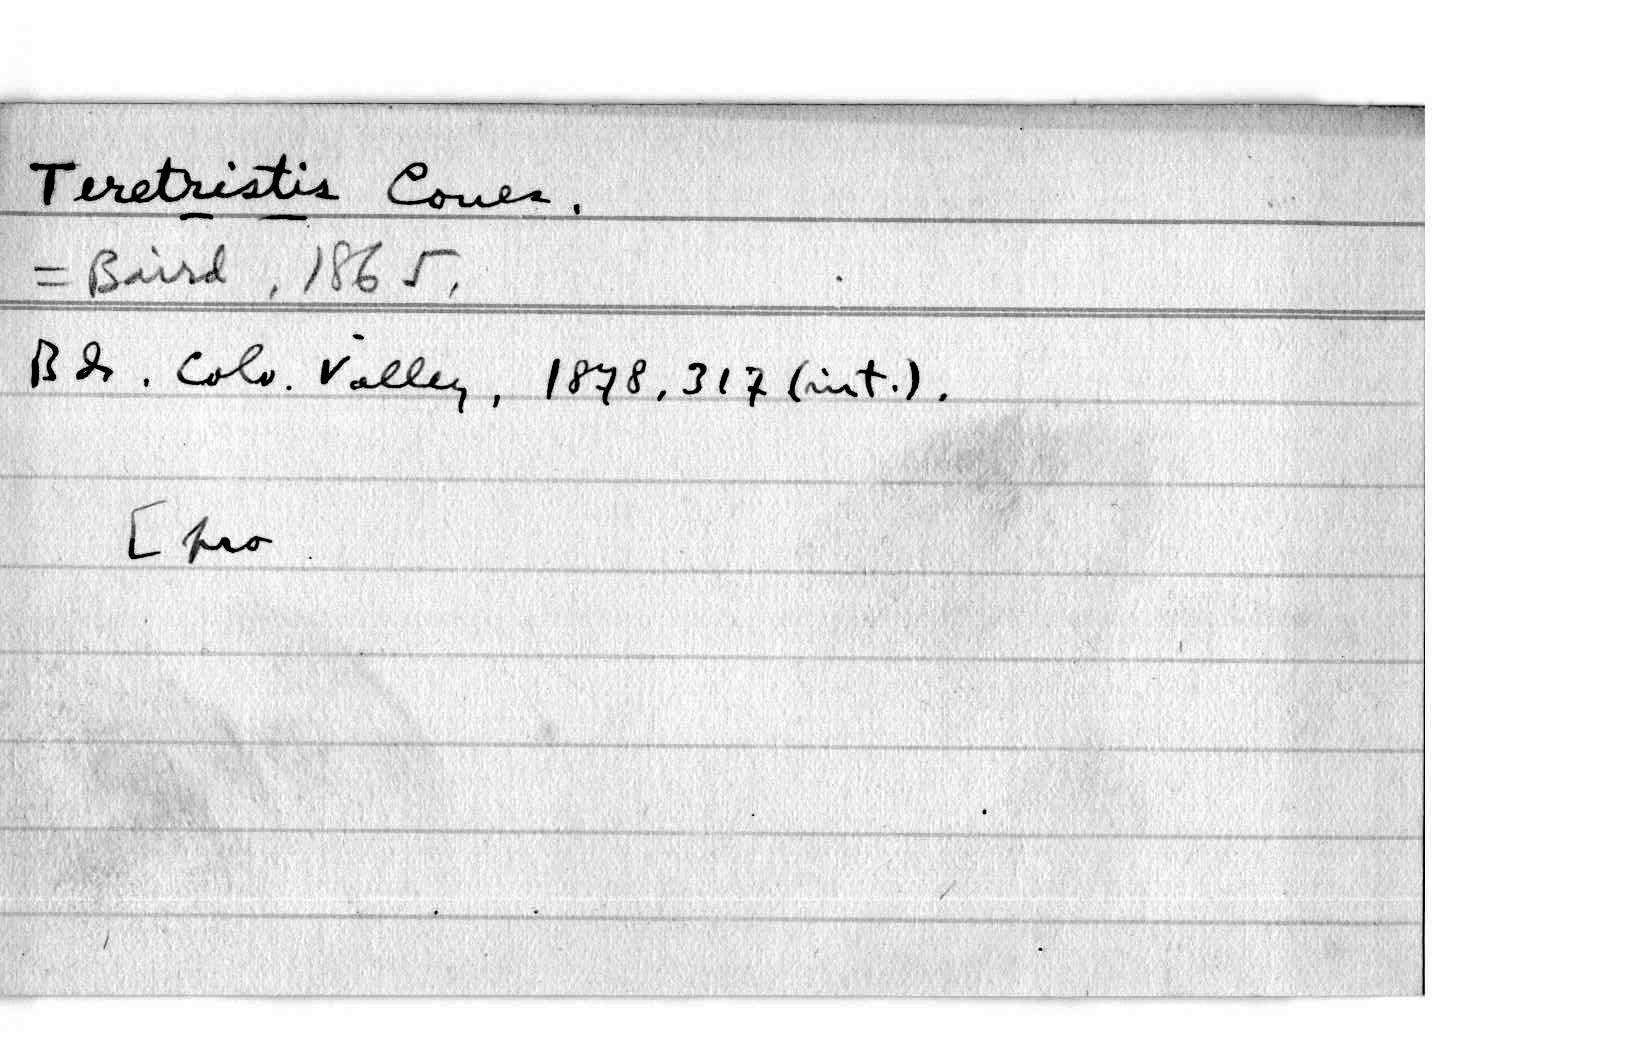 Teretristis Coues.
= Baird, 1865.
Bds. Colo. Valley, 1878, 317 (int.).
[pro